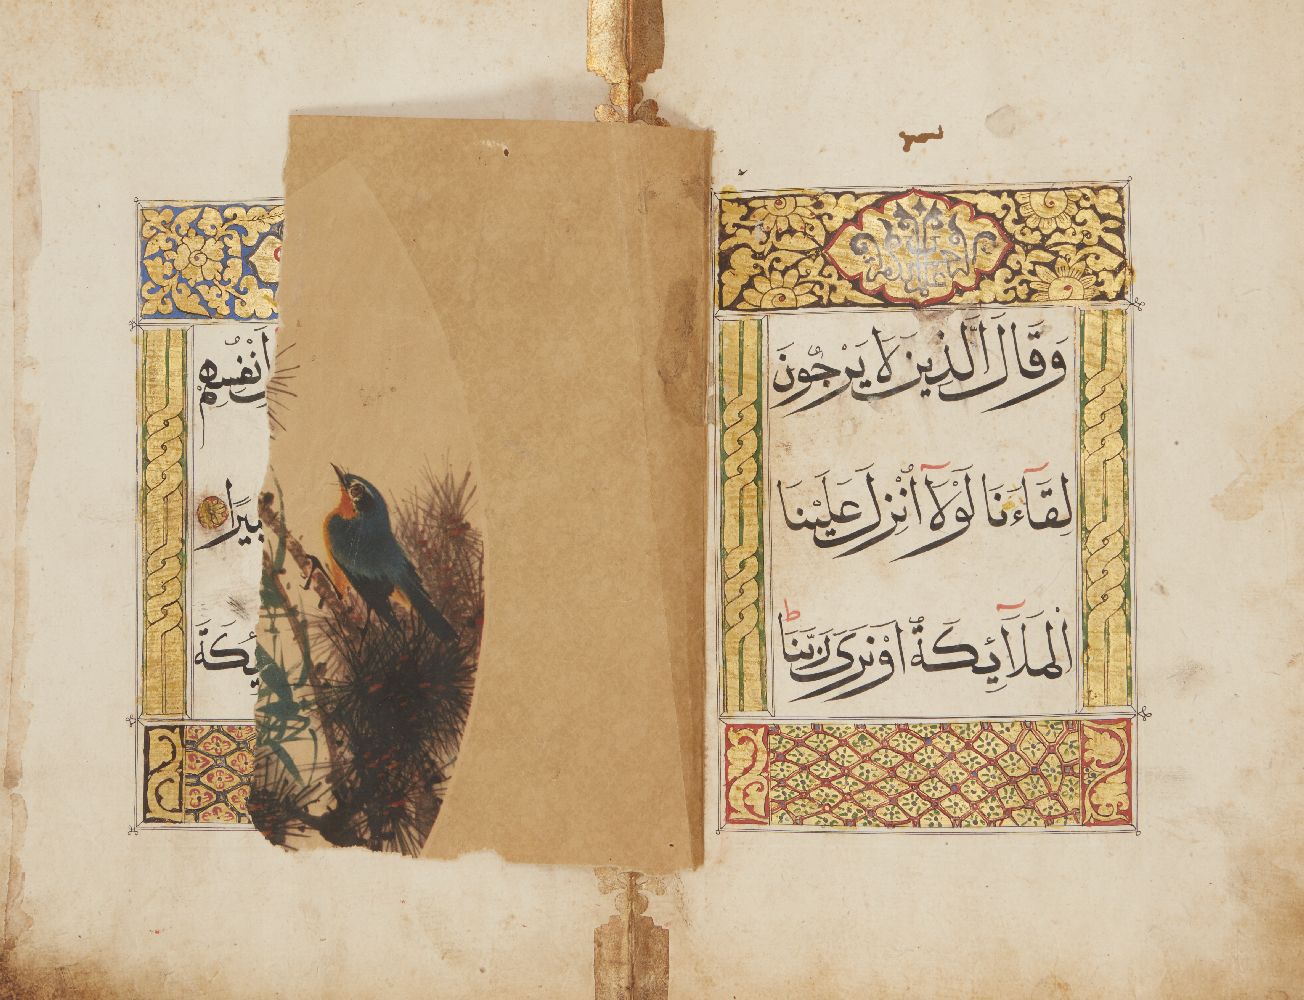 وَقَالَ الَّذِينَ لَا يَرْجُونَ
لِقَآءَنَا لَوْلَآ اُنْزِلَ عَلَيْنَا
الْمَلَآئِكَةُ اَوْ نَرَى رَبَّنَا ط
اَنْفُسِهِمْ
بِيرًا
ئِكَةَ